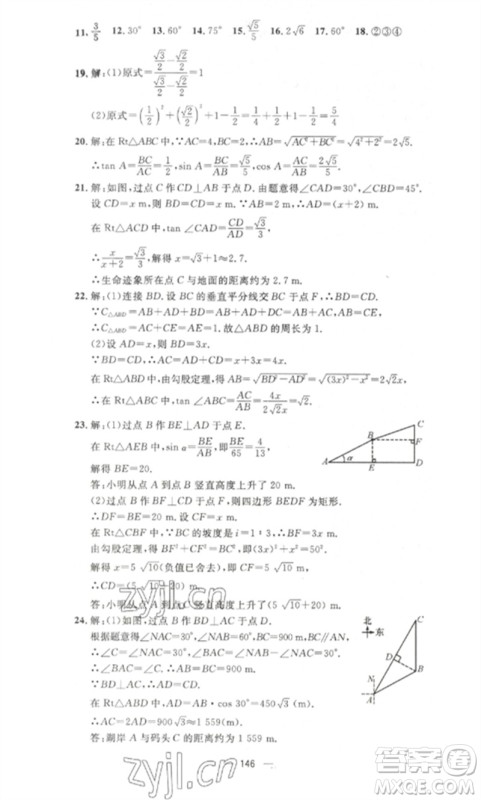 11. 3/5 12. 30° 13. 60° 14. 75° 15. √5/5 16. 2√6 17. 60° 18. ②③④
19. 解:(1)原式=(√3/2-√2/2)/(√3/2-√2/2)=1
(2)原式=(1/2)²+(√2/2)²+1-1/2=1/4+1-1/2=5/4
20. 解:在 Rt△ABC 中,∵AC=4,BC=2,∴AB=√(AC²+BC²)=√(4²+2²)=2√5.
∴tan A=BC/AC=1/2,sin A=BC/AB=√5/5,cos A=AC/AB=2√5/5.
21. 解:如图,过点 C 作 CD⊥AB 于点 D. 由题意得∠CAD=30°,∠CBD=45°.
设 CD=x m,则 BD=CD=x m,∴AD=(x+2) m.
在 Rt△ACD 中,tan∠CAD=CD/AD=√3/3,
∴x/(x+2)=√3/3,解得 x=√3+1≈2.7.
∴生命迹象所在点 C 与地面的距离约为 2.7 m.
22. 解:(1)连接 BD. 设 BC 的垂直平分线交 BC 于点 F,∴BD=CD.
∵C△ABD=AB+AD+BD=AB+AD+DC=AB+AC,AB=CE,
∴C△ABD=AC+CE=AE=1. 故△ABD 的周长为 1.
(2)设 AD=x,则 BD=3x.
∵BD=CD,∴AC=AD+CD=4x.
在 Rt△ABD 中,由勾股定理,得 AB=√(BD²-AD²)=√((3x)²-x²)=2√2x.
在 Rt△ABC 中,tan∠ABC=AC/AB=4x/2√2x=√2.
23. 解:(1)过点 B 作 BE⊥AD 于点 E.
在 Rt△AEB 中,sin α=BE/AB,即BE/65=4/13,
解得 BE=20.
答:小明从点 A 到点 B 竖直高度上升了 20 m.
(2)过点 B 作 BF⊥CD 于点 F,则四边形 BEDF 为矩形.
∴DF=BE=20 m. 设 CF=x m.
在 Rt△BCF 中,∵BC 的坡度是 i=1:3,∴BF=3x m.
由勾股定理,得 BF²+CF²=BC²,即(3x)²+x²=50².
解得 x=5√10(负值已舍去),即 CF=5√10 m.
∴CD=(5√10+20) m.
答:小明从点 A 到点 C 竖直高度上升了(5√10+20) m.
24. 解:(1)如图,过点 B 作 BD⊥AC 于点 D.
根据题意得∠NAC=30°,∠NAB=60°,BC∥AN.
∴∠C=∠NAC=30°,∠BAC=∠NAB-∠NAC=30°.
∴∠BAC=∠C. ∴AB=BC=900 m.
∵BD⊥AC,∴AD=CD.
在 Rt△ABD 中,AD=AB·cos 30°=450√3(m).
∴AC=2AD=900√3≈1 559(m).
答:湖岸 A 与码头 C 的距离约为 1 559 m.
A
α
B
E
C
F
D
北
东
N
A
D
B
C
zyjl.cn
zyjl.cn
146
答案圈
MXQE.COM